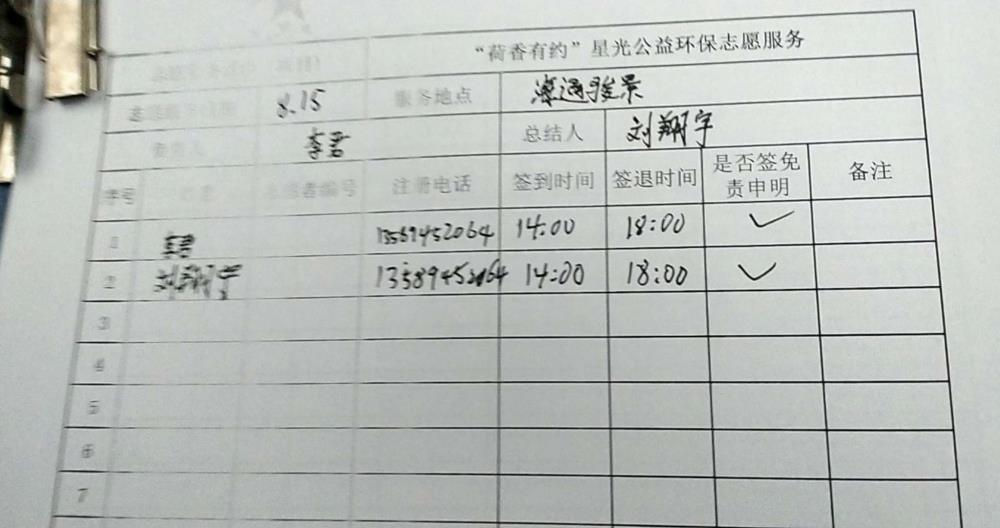 “荷香有约”星光公益环保志愿服务
8.15 服务地点
负责人 李君 总结人 刘翔宇
序号 志愿者编号 注册电话 签到时间 签退时间 是否签免责申明 备注
1 李君 13589452064 14:00 18:00 ✓
2 刘翔宇 13589452064 14:00 18:00 ✓
3
4
5
6
7